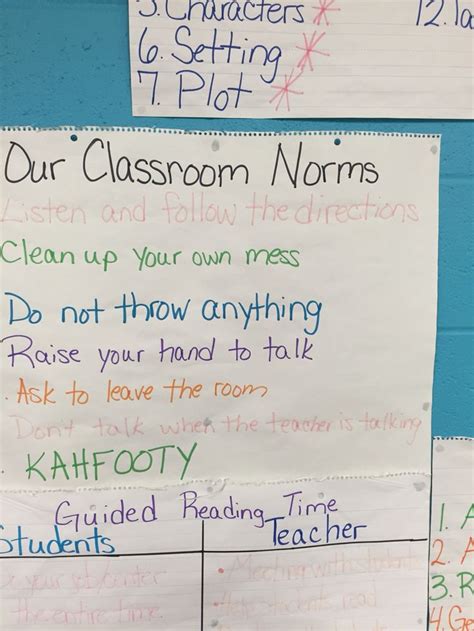 5. Characters *
6. Setting *
7. Plot *
12.
Our Classroom Norms
Listen and follow the directions
Clean up your own mess
Do not throw anything
Raise your hand to talk
. Ask to leave the room
Don't talk when the teacher is talking
. KAHFOOTY
Guided Reading Time
Students
Teacher
your job/center
the entire time
• Meeting with students
• students read
1. A
2. A
3. R
4. Ge